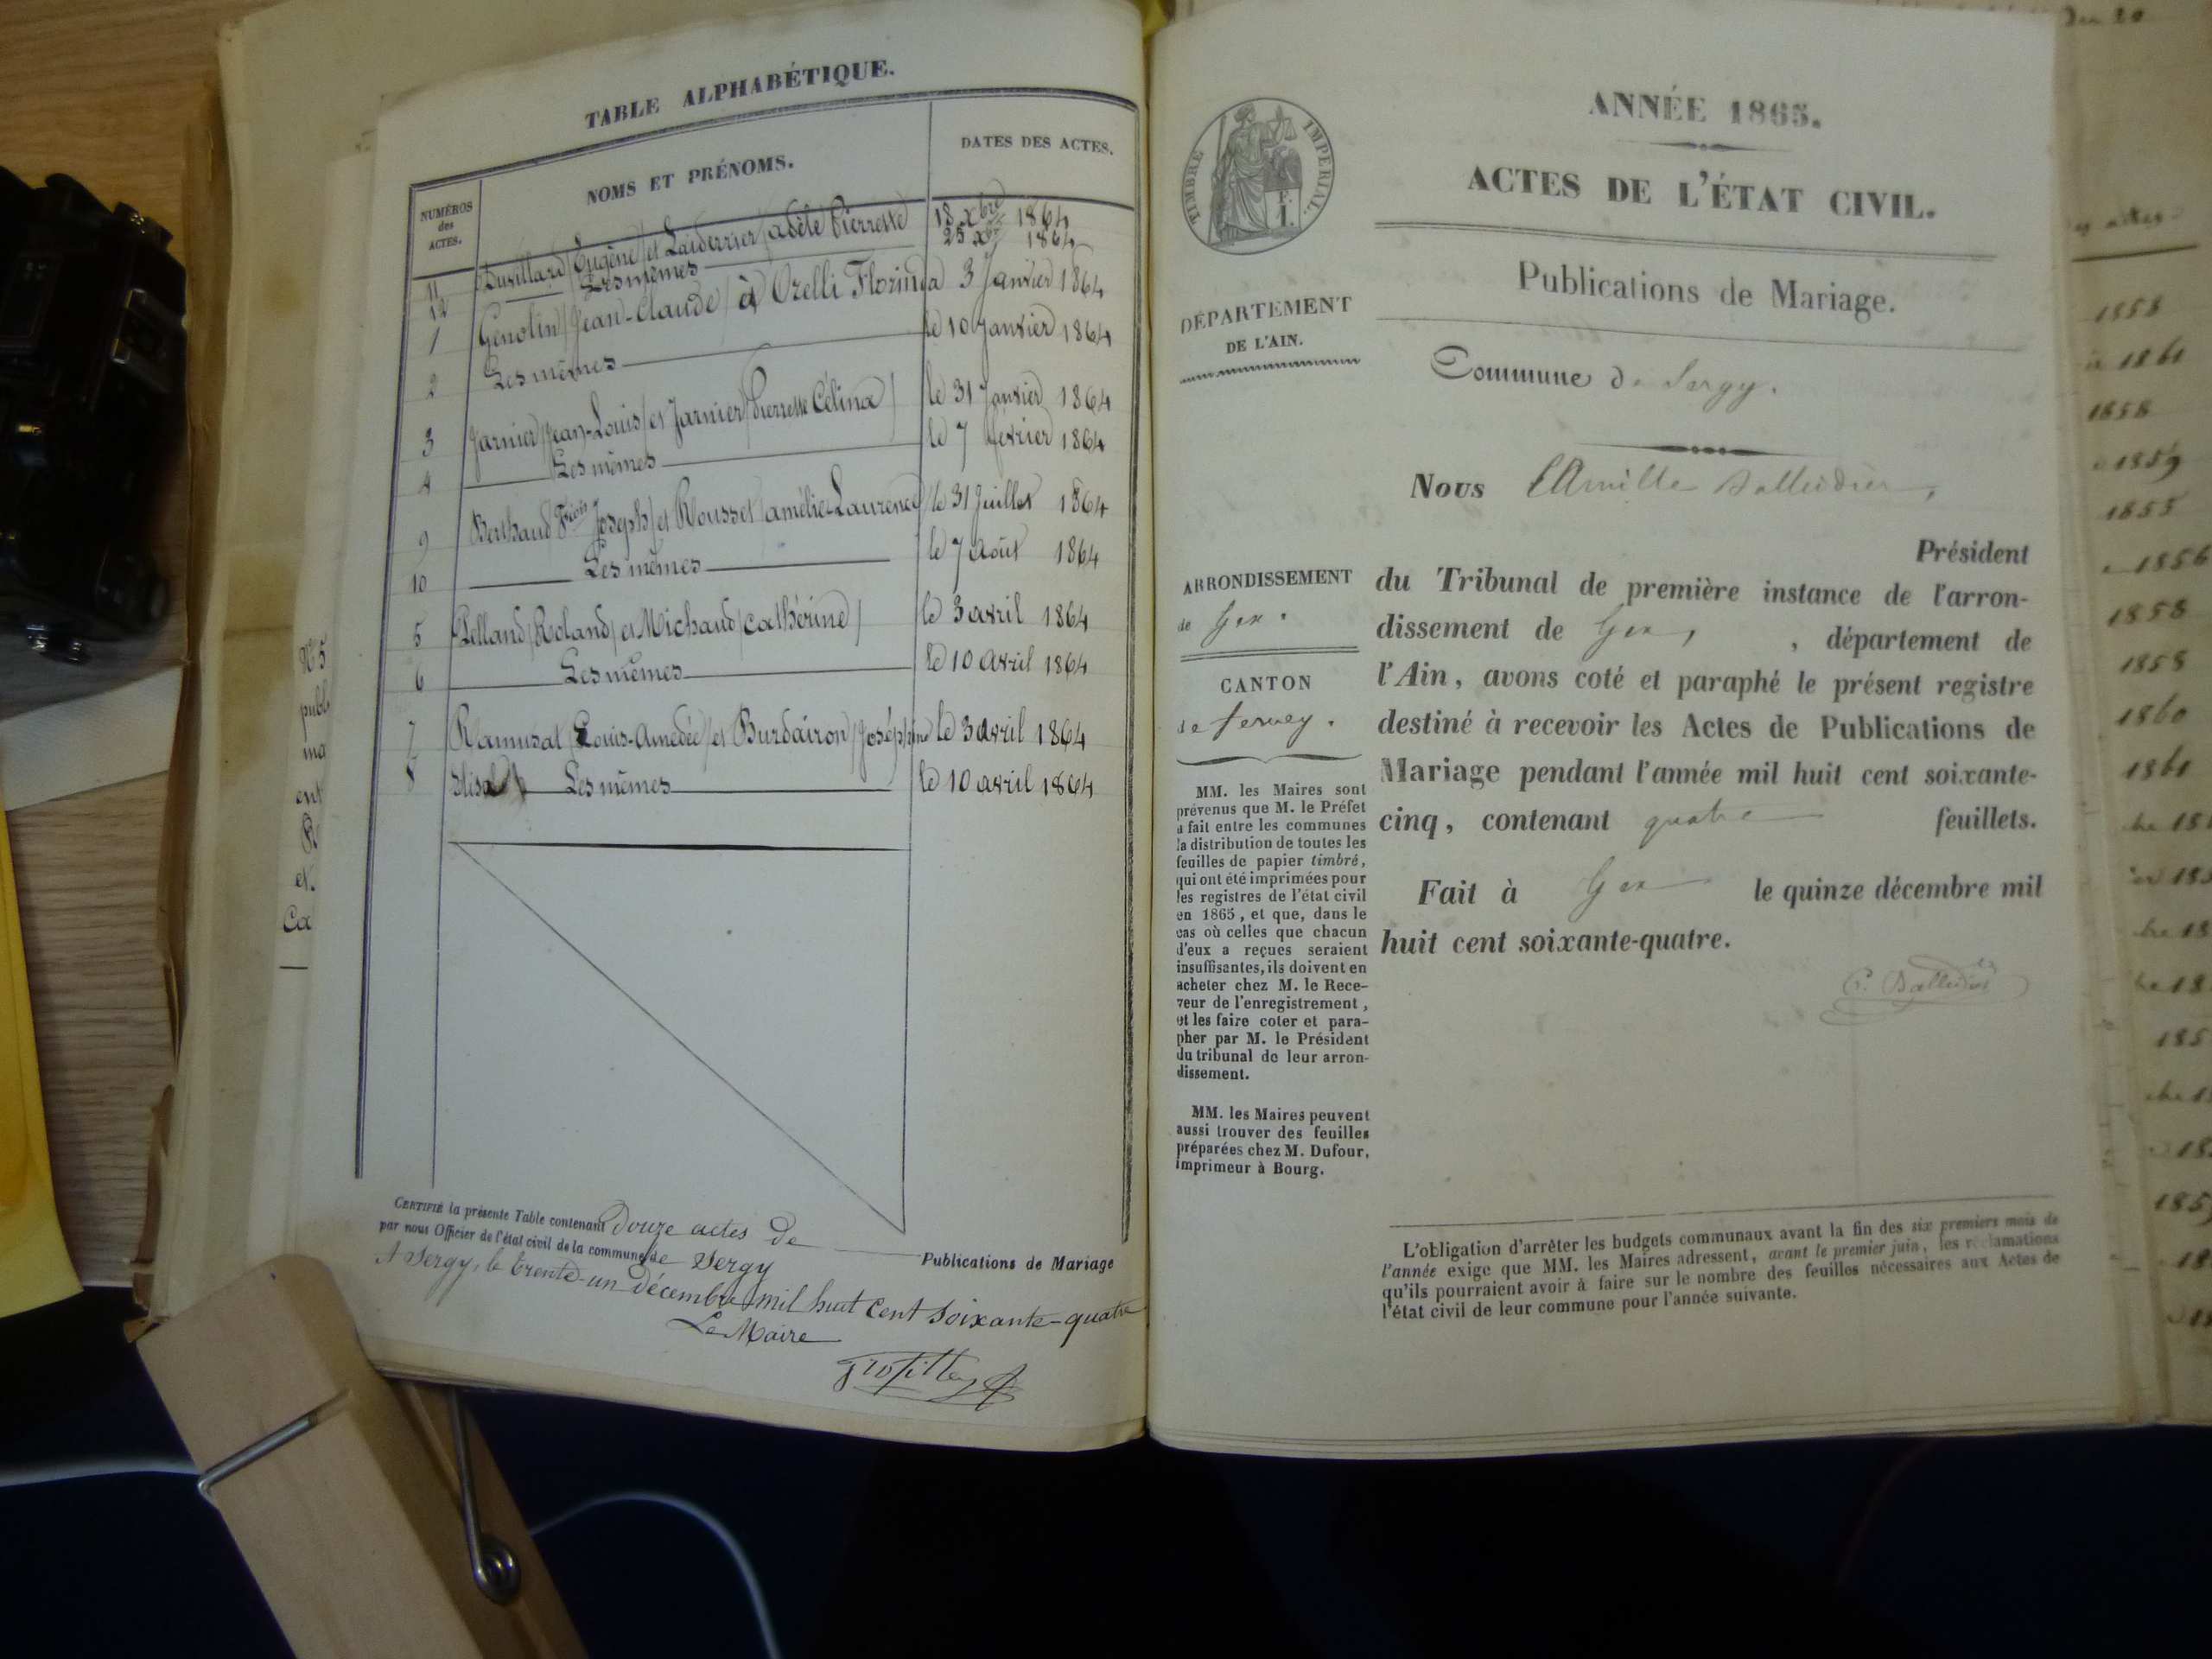 TABLE ALPHABÉTIQUE.
NUMÉROS
des
ACTES.
NOMS ET PRÉNOMS.
DATES DES ACTES.
11 Duvillard (Eugène) et Laiderrier (adèle Pierrette 18 Xbre 1864
12 Les mêmes 25 Xbre 1864
1 Genolin (Jean-Claude) et Orelli Florinda 3 Janvier 1864
2 Les mêmes le 10 Janvier 1864
3 Jarnier (Jean-Louis) et Jarnier (Pierrette Célina) le 31 Janvier 1864
4 Les mêmes le 7 février 1864
9 Berthaud Frois Joseph) et Rousset (amélie Laurence) le 31 Juillet 1864
10 Les mêmes le 7 Août 1864
5 Pelland (Roland) et Michaud (cathérine) le 3 avril 1864
6 Les mêmes le 10 avril 1864
7 Ramusat (Louis-Amédée) et Burdairon (Joséphine le 3 avril 1864
8 Elisa) Les mêmes le 10 avril 1864
CERTIFIÉ la présente Table contenant Douze actes de Publications de Mariage
par nous Officier de l'état civil de la commune de Sergy
A Sergy, le trente-un décembre mil huit cent soixante-quatre
Le Maire
N° 5
publ
ma
ent
et
Ca
ANNÉE 1865.
ACTES DE L'ÉTAT CIVIL.
TIMBRE IMPERIAL.
Publications de Mariage.
DÉPARTEMENT
DE L'AIN.
Commune de Sergy.
Nous Camille Balleidier,
Président
ARRONDISSEMENT
de Gex.
CANTON
de ferney.
du Tribunal de première instance de l'arron-
dissement de Gex, , département de
l'Ain, avons coté et paraphé le présent registre
destiné à recevoir les Actes de Publications de
Mariage pendant l'année mil huit cent soixante-
cinq, contenant quatre feuillets.
Fait à Gex le quinze décembre mil
huit cent soixante-quatre.
C. Balleidier
MM. les Maires sont
prévenus que M. le Préfet
a fait entre les communes
la distribution de toutes les
feuilles de papier timbré,
qui ont été imprimées pour
les registres de l'état civil
en 1865, et que, dans le
cas où celles que chacun
d'eux a reçues seraient
insuffisantes, ils doivent en
acheter chez M. le Rece-
veur de l'enregistrement,
et les faire coter et para-
pher par M. le Président
du tribunal de leur arron-
dissement.
MM. les Maires peuvent
aussi trouver des feuilles
préparées chez M. Dufour,
imprimeur à Bourg.
L'obligation d'arrêter les budgets communaux avant la fin des six premiers mois de
l'année exige que MM. les Maires adressent, avant le premier juin, les réclamations
qu'ils pourraient avoir à faire sur le nombre des feuilles nécessaires aux Actes de
l'état civil de leur commune pour l'année suivante.
1858
1861
1858
1859
1855
1856
1858
1858
1860
1861